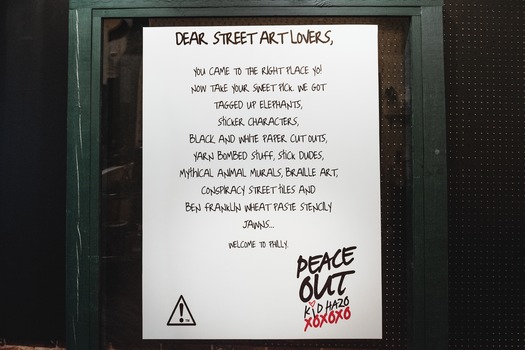 DEAR STREET ART LOVERS,
YOU CAME TO THE RIGHT PLACE YO!
NOW TAKE YOUR SWEET PICK. WE GOT
TAGGED UP ELEPHANTS,
STICKER CHARACTERS,
BLACK AND WHITE PAPER CUT OUTS,
YARN BOMBED STUFF, STICK DUDES,
MYTHICAL ANIMAL MURALS, BRAILLE ART,
CONSPIRACY STREET TILES AND
BEN FRANKLIN WHEAT PASTE STENCILY
JAWNS...
WELCOME TO PHILLY.
PEACE
OUT
KiD HAZO
XOXOXO
!